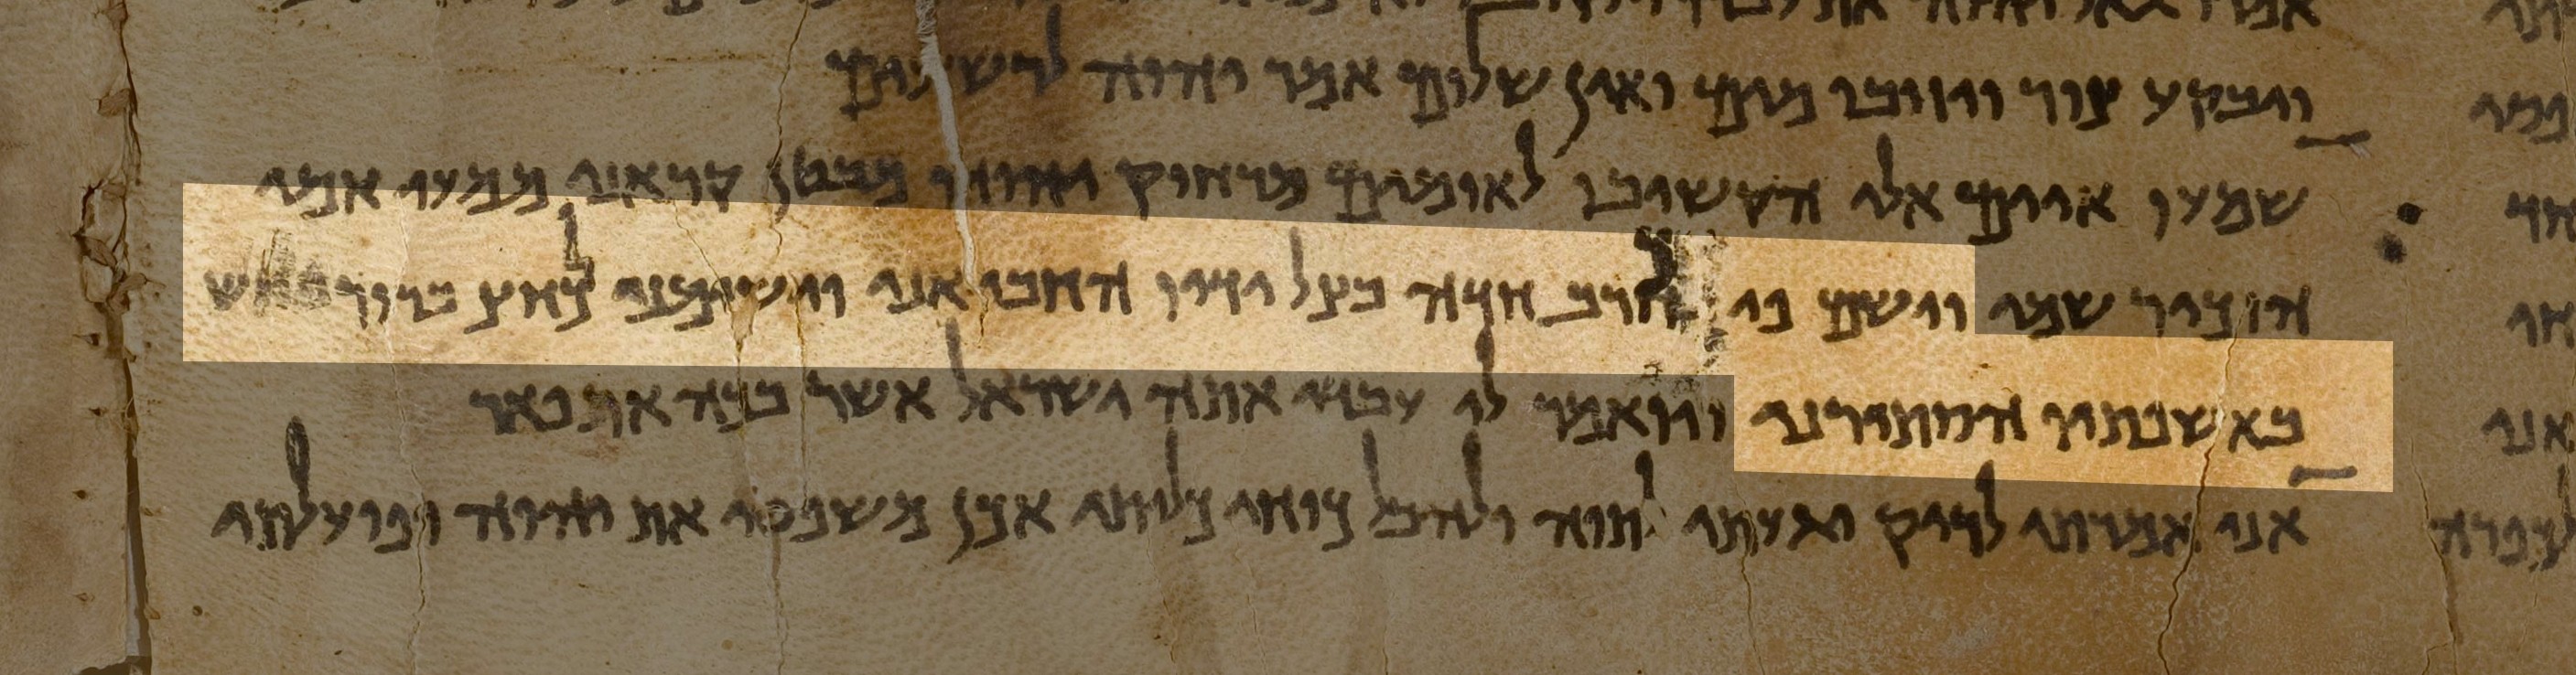 ויבקע צור ויזובו מים ואין שלום אמר יהוה לרשעים
שמעו איים אלי הקשיבו לאומים מרחוק יהוה מבטן קראני ממעי אמי
הזכיר שמי וישם פי כחרב חדה בצל ידיו החביאני וישימני כחץ ברור
באשפתיו הסתירני ויואמר לי עבדי אתה ישראל אשר בכה אתפאר
אני אמרתי לריק יגעתי לתוה ולהבל כוחי כליתי אכן משפטי את יהוה ופועלתי